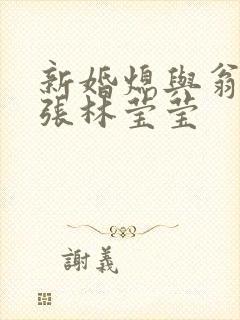 新婚熄與翁
張林莹莹
謝義